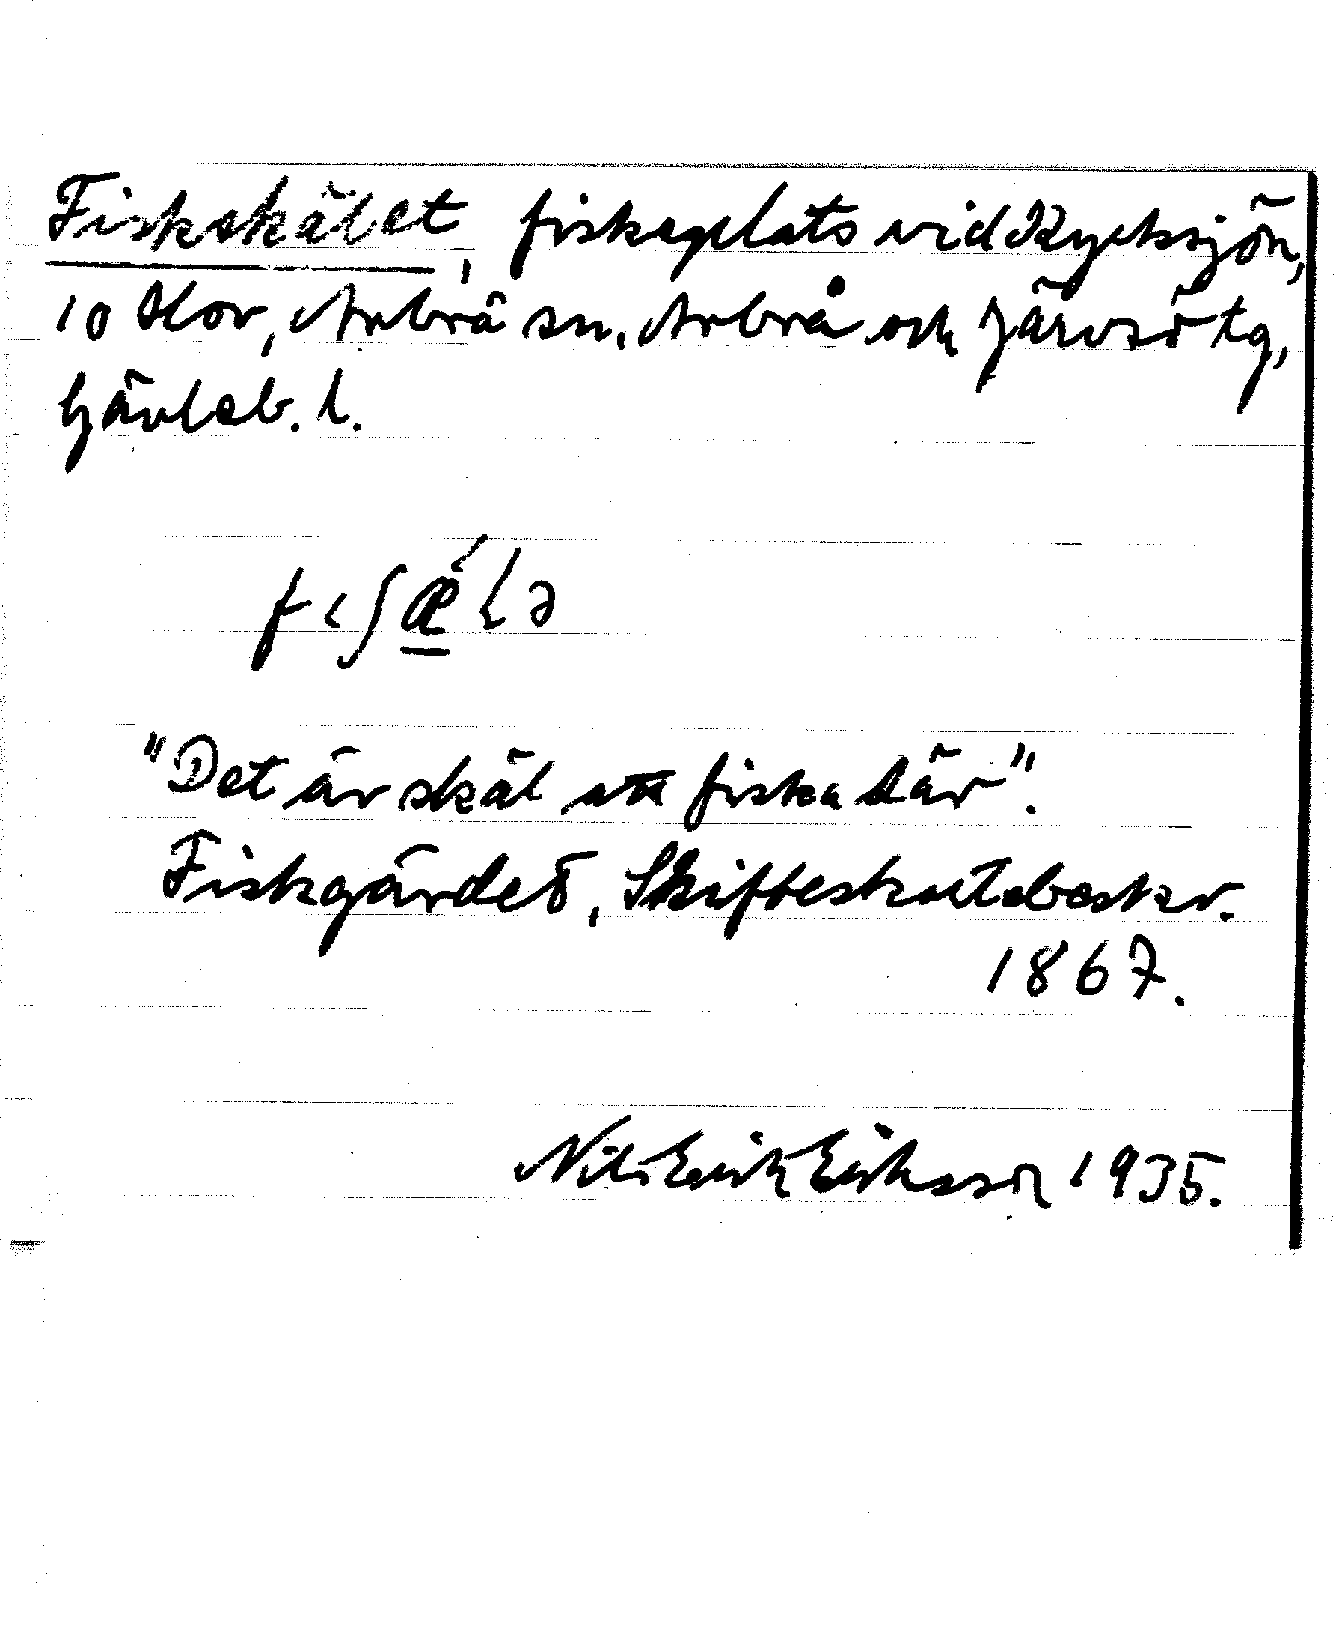 Fiskskälet, fiskeplats vid Kycksjön,
10 Hov, Arbrå sn, Arbrå och Järvsö tg,
Gävleb. l.
fɩʃǽlə
"Det är skäl att fiska där".
Fiskgärdet, Skifteskartebeskr.
1867.
Nils Erik Eriksson 1935.